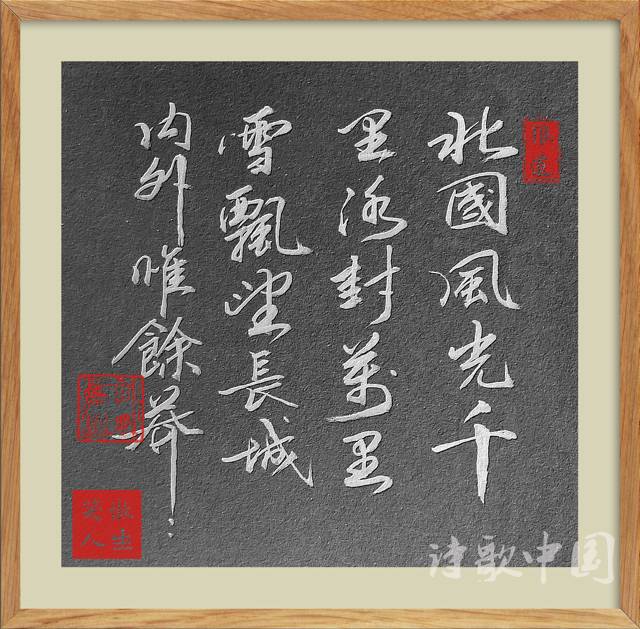 北國風光千
里冰封萬里
雪飄望長城
内外唯餘莽:
诗歌中国